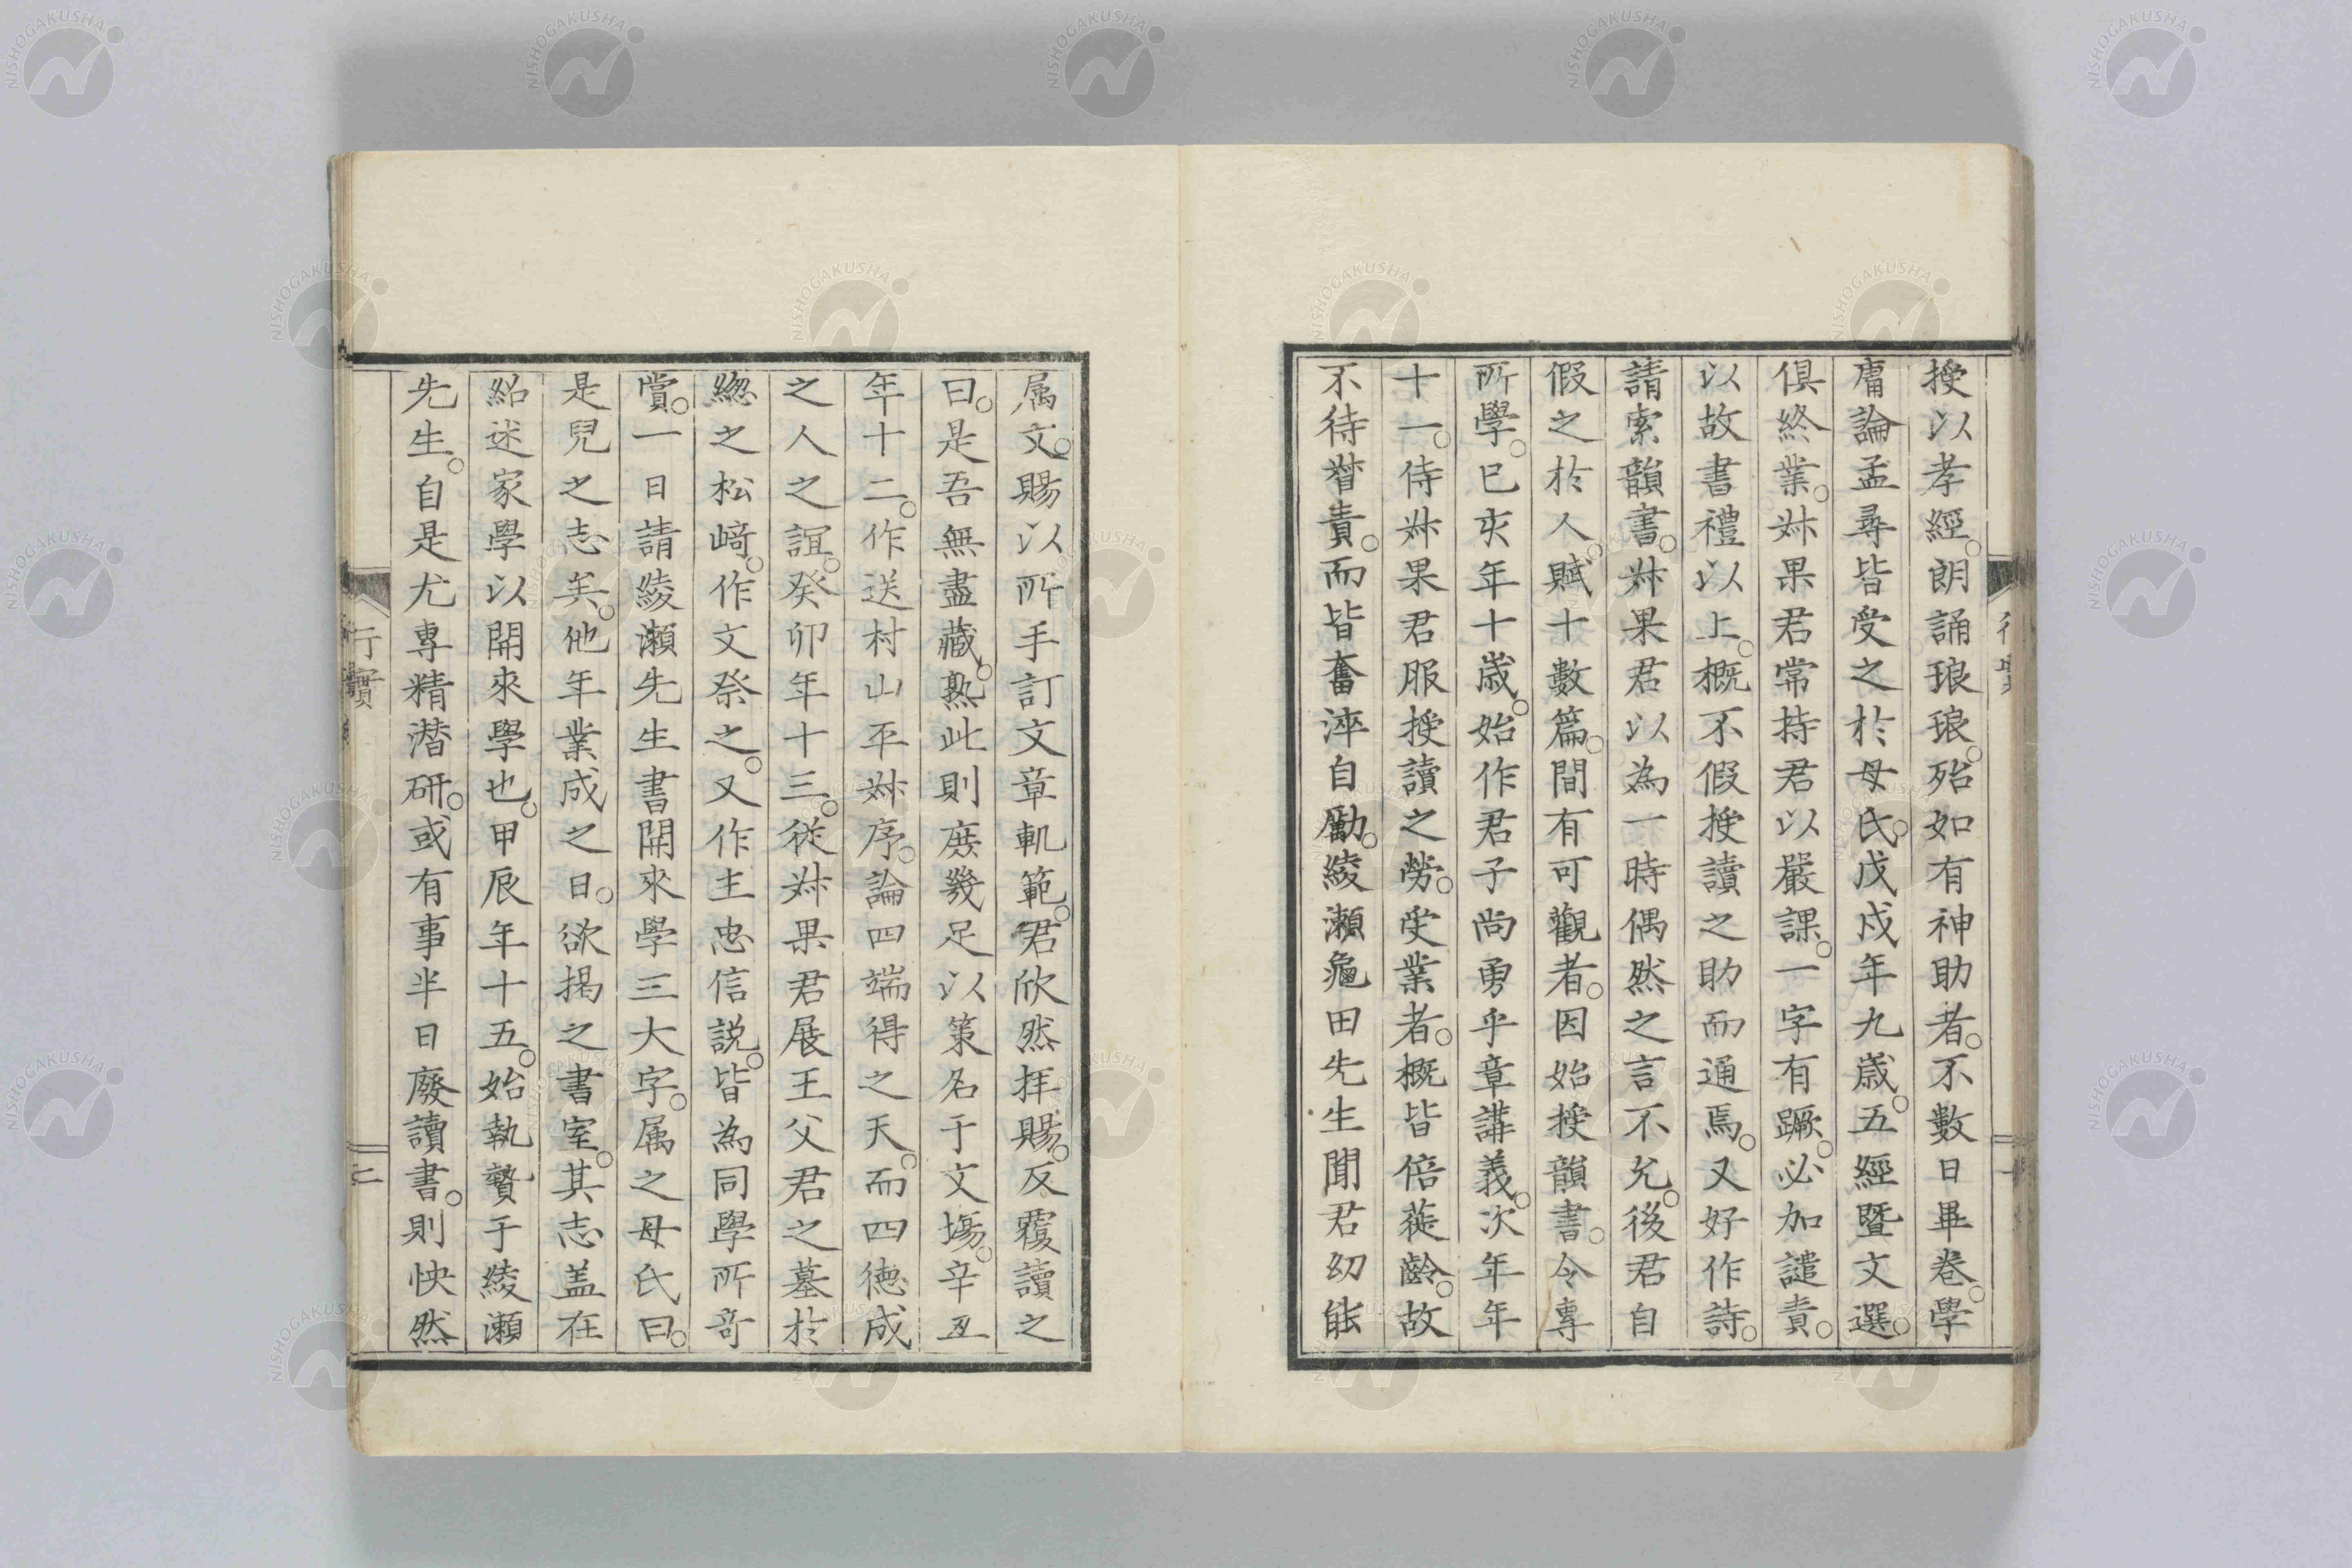 授以孝經。朗誦琅琅。殆如有神助者。不數日畢卷。學
庸論孟尋皆受之於母氏。戊戌年九歳。五經暨文選。
俱終業。姊果君常持君以嚴課。一字有蹶。必加譴責。
以故書禮以上。概不假授讀之助而通焉。又好作詩。
請索韻書。姊果君以為一時偶然之言不允。後君自
假之於人。賦十數篇。間有可觀者。因始授韻書。令專
所學。已亥年十歳。始作君子尚勇乎章講義。次年年
十一。侍姊果君服授讀之勞。受業者。概皆倍蓰齡。故
不待督責。而皆奮淬自勵。綾瀬龜田先生聞君幼能
属文。賜以所手訂文章軌範。君欣然拝賜。反覆讀之
曰。是吾無盡藏。熟此則庶幾足以策名于文塲。辛丑
年十二。作送村山平姊序。論四端得之天。而四徳成
之人之誼。癸卯年十三。從姊果君展王父君之墓於
總之松﨑。作文祭之。又作主忠信説。皆為同學所竒
賞。一日請綾瀬先生書開來學三大字。属之母氏曰。
是兒之志矣。他年業成之日。欲掲之書室。其志盖在
紹述家學以開來學也。甲辰年十五。始執贄于綾瀬
先生。自是尤専精潜研。或有事半日廢讀書。則怏然
行實
二
NISHOGAKUSHA